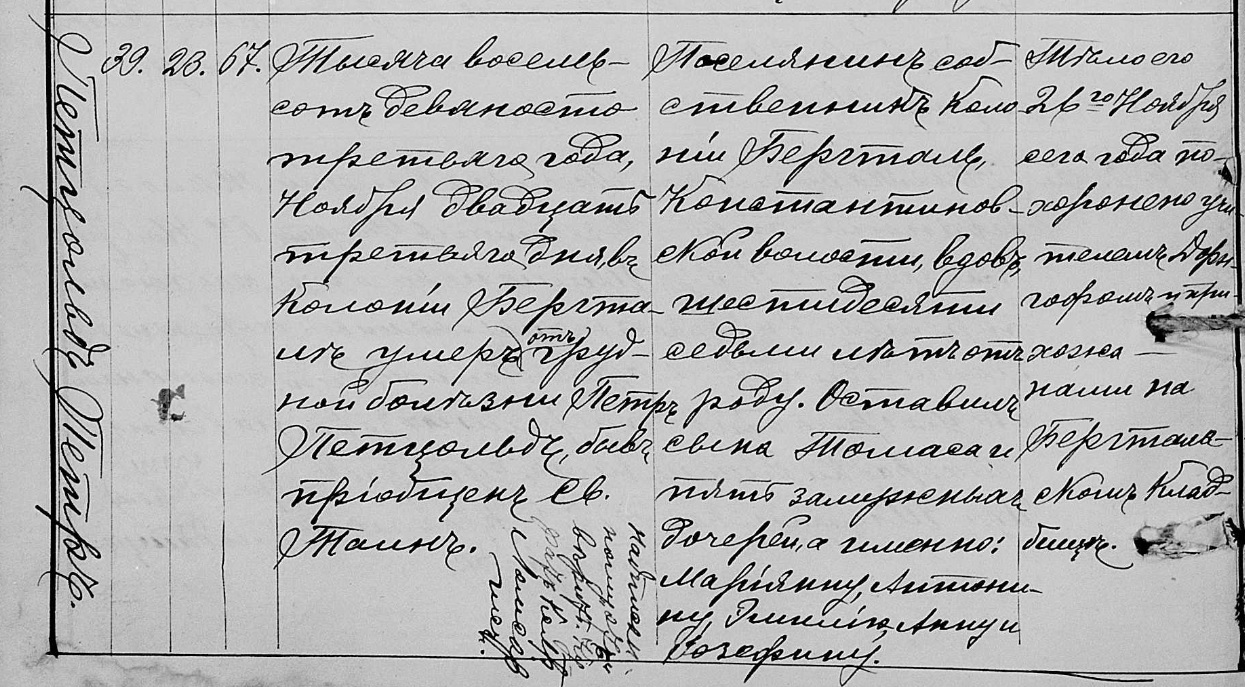 Петцольдъ Петръ.
39. 23. 67.
Тысяча восемь-
сотъ девяносто
третьяго года,
Ноября двадцать
третьяго дня, въ
Колоніи Бергта-
лѣ умеръ отъ груд-
ной болѣзни Петръ
Петцольдъ, бывъ
пріобщенъ Св.
Таинъ.
Поселянинъ соб-
ственникъ Коло-
ніи Бергталь,
Константинов-
ской волости, вдовъ,
шестидесяти
седьми лѣтъ отъ
роду. Оставилъ
сына Томаса и
пять замужныхъ
дочерей, а именно:
Маріянну, Антони-
ну, Эмилію, Анну и
Іозефину.
Тѣло его
26го Ноября
сего года по-
хоронено учи-
телемъ
и при-
хожа-
нами на
Бергталь-
скомъ Клад-
бищѣ.